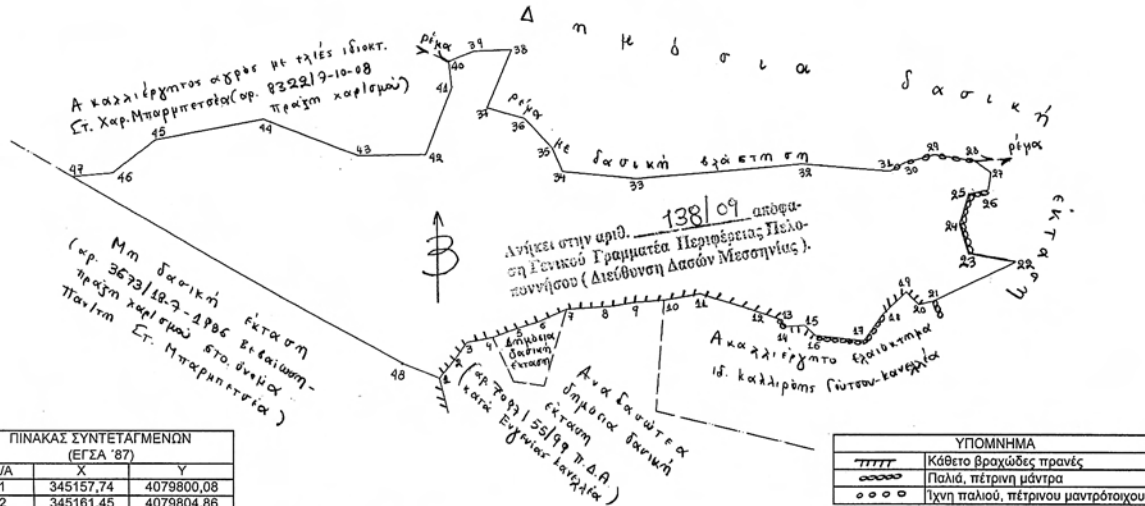 Δημόσια δασική έκταση
Ακαλλιέργητος αγρός με ελιές ιδιοκτ.
Στ. Χαρ. Μπαρμπετσέα (αρ. 8322/9-10-08
πράξη χαρ/σμού)
ρέμα
39
38
40
41
37
36
ρέμα με δασική βλάστηση
35
34
33
32
31
30
29
28
ρέμα
27
26
25
24
23
22
21
20
19
18
17
16
15
14
13
12
11
10
9
8
7
6
5
4
3
2
1
48
47
46
45
44
43
42
Ανήκει στην αριθ. 138/09 απόφα-
ση Γενικού Γραμματέα Περιφέρειας Πελο-
ποννήσου (Διεύθυνση Δασών Μεσσηνίας).
Β
Μη δασική έκταση
(αρ. 3673/18-7-1986 βεβαίωση-
πράξη χαρ/σμού στο όνομα
Παν/τη Στ. Μπαρμπετσέα)
Δημόσια
δασική
έκταση
(αρ. 7097/55/99 Π.Δ.Α.
κατά Ευγενίας Κανελλέα)
Αναδασωτέα
δημόσια δασική
έκταση
Ακαλλιέργητο ελαιόκτημα
ιδ. Καλλιρόης Γούτσου-Κανελλέα
ΠΙΝΑΚΑΣ ΣΥΝΤΕΤΑΓΜΕΝΩΝ
(ΕΓΣΑ '87)
/Α X Y
1 345157,74 4079800,08
2 345161,45 4079804,86
ΥΠΟΜΝΗΜΑ
Κάθετο βραχώδες πρανές
Παλιά, πέτρινη μάντρα
Ίχνη παλιού, πέτρινου μαντρότοιχου